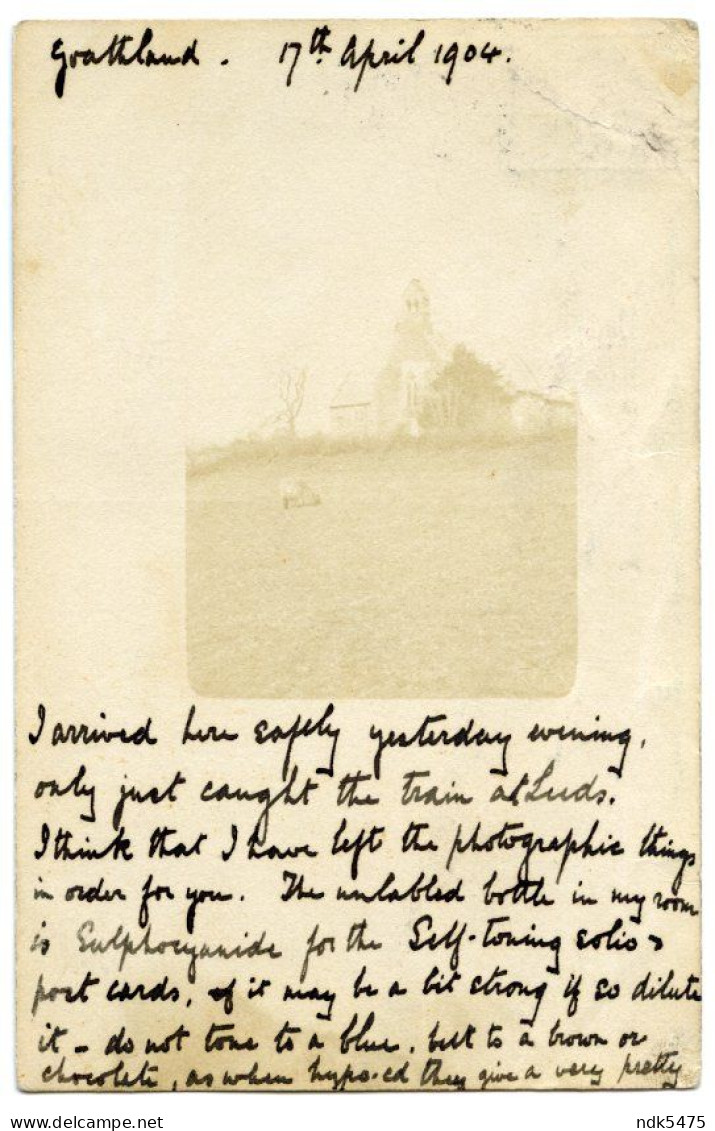 Goathland. 17th April 1904.
I arrived here safely yesterday evening,
only just caught the train at Leeds.
I think that I have left the photographic things
in order for you. The unlabled bottle in my room
is Sulphocyanide for the Self-toning solio
post cards, it may be a bit strong if so dilute
it - do not tone to a blue, but to a brown or
chocolate, as when hypo-ed they give a very pretty
delcampe.net
ndk5475